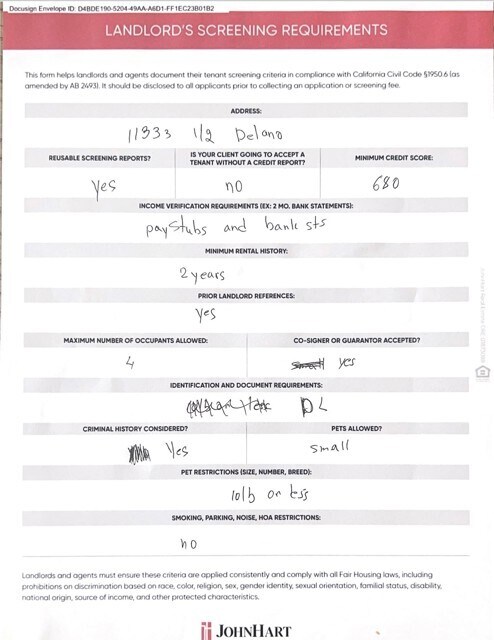 Docusign Envelope ID: D4BDE190-5204-49AA-A6D1-FF1EC23B01B2
LANDLORD'S SCREENING REQUIREMENTS
This form helps landlords and agents document their tenant screening criteria in compliance with California Civil Code §1950.6 (as
amended by AB 2493). It should be disclosed to all applicants prior to collecting an application or screening fee.
ADDRESS:
11333 1/2 Delano
REUSABLE SCREENING REPORTS?
yes
IS YOUR CLIENT GOING TO ACCEPT A
TENANT WITHOUT A CREDIT REPORT?
no
MINIMUM CREDIT SCORE:
680
INCOME VERIFICATION REQUIREMENTS (EX: 2 MO. BANK STATEMENTS):
paystubs and bank sts
MINIMUM RENTAL HISTORY:
2 years
PRIOR LANDLORD REFERENCES:
yes
MAXIMUM NUMBER OF OCCUPANTS ALLOWED:
4
CO-SIGNER OR GUARANTOR ACCEPTED?
yes
IDENTIFICATION AND DOCUMENT REQUIREMENTS:
DL
CRIMINAL HISTORY CONSIDERED?
Yes
PETS ALLOWED?
small
PET RESTRICTIONS (SIZE, NUMBER, BREED):
10lb or less
SMOKING, PARKING, NOISE, HOA RESTRICTIONS:
no
Landlords and agents must ensure these criteria are applied consistently and comply with all Fair Housing laws, including
prohibitions on discrimination based on race, color, religion, sex, gender identity, sexual orientation, familial status, disability,
national origin, source of income, and other protected characteristics.
JOHNHART